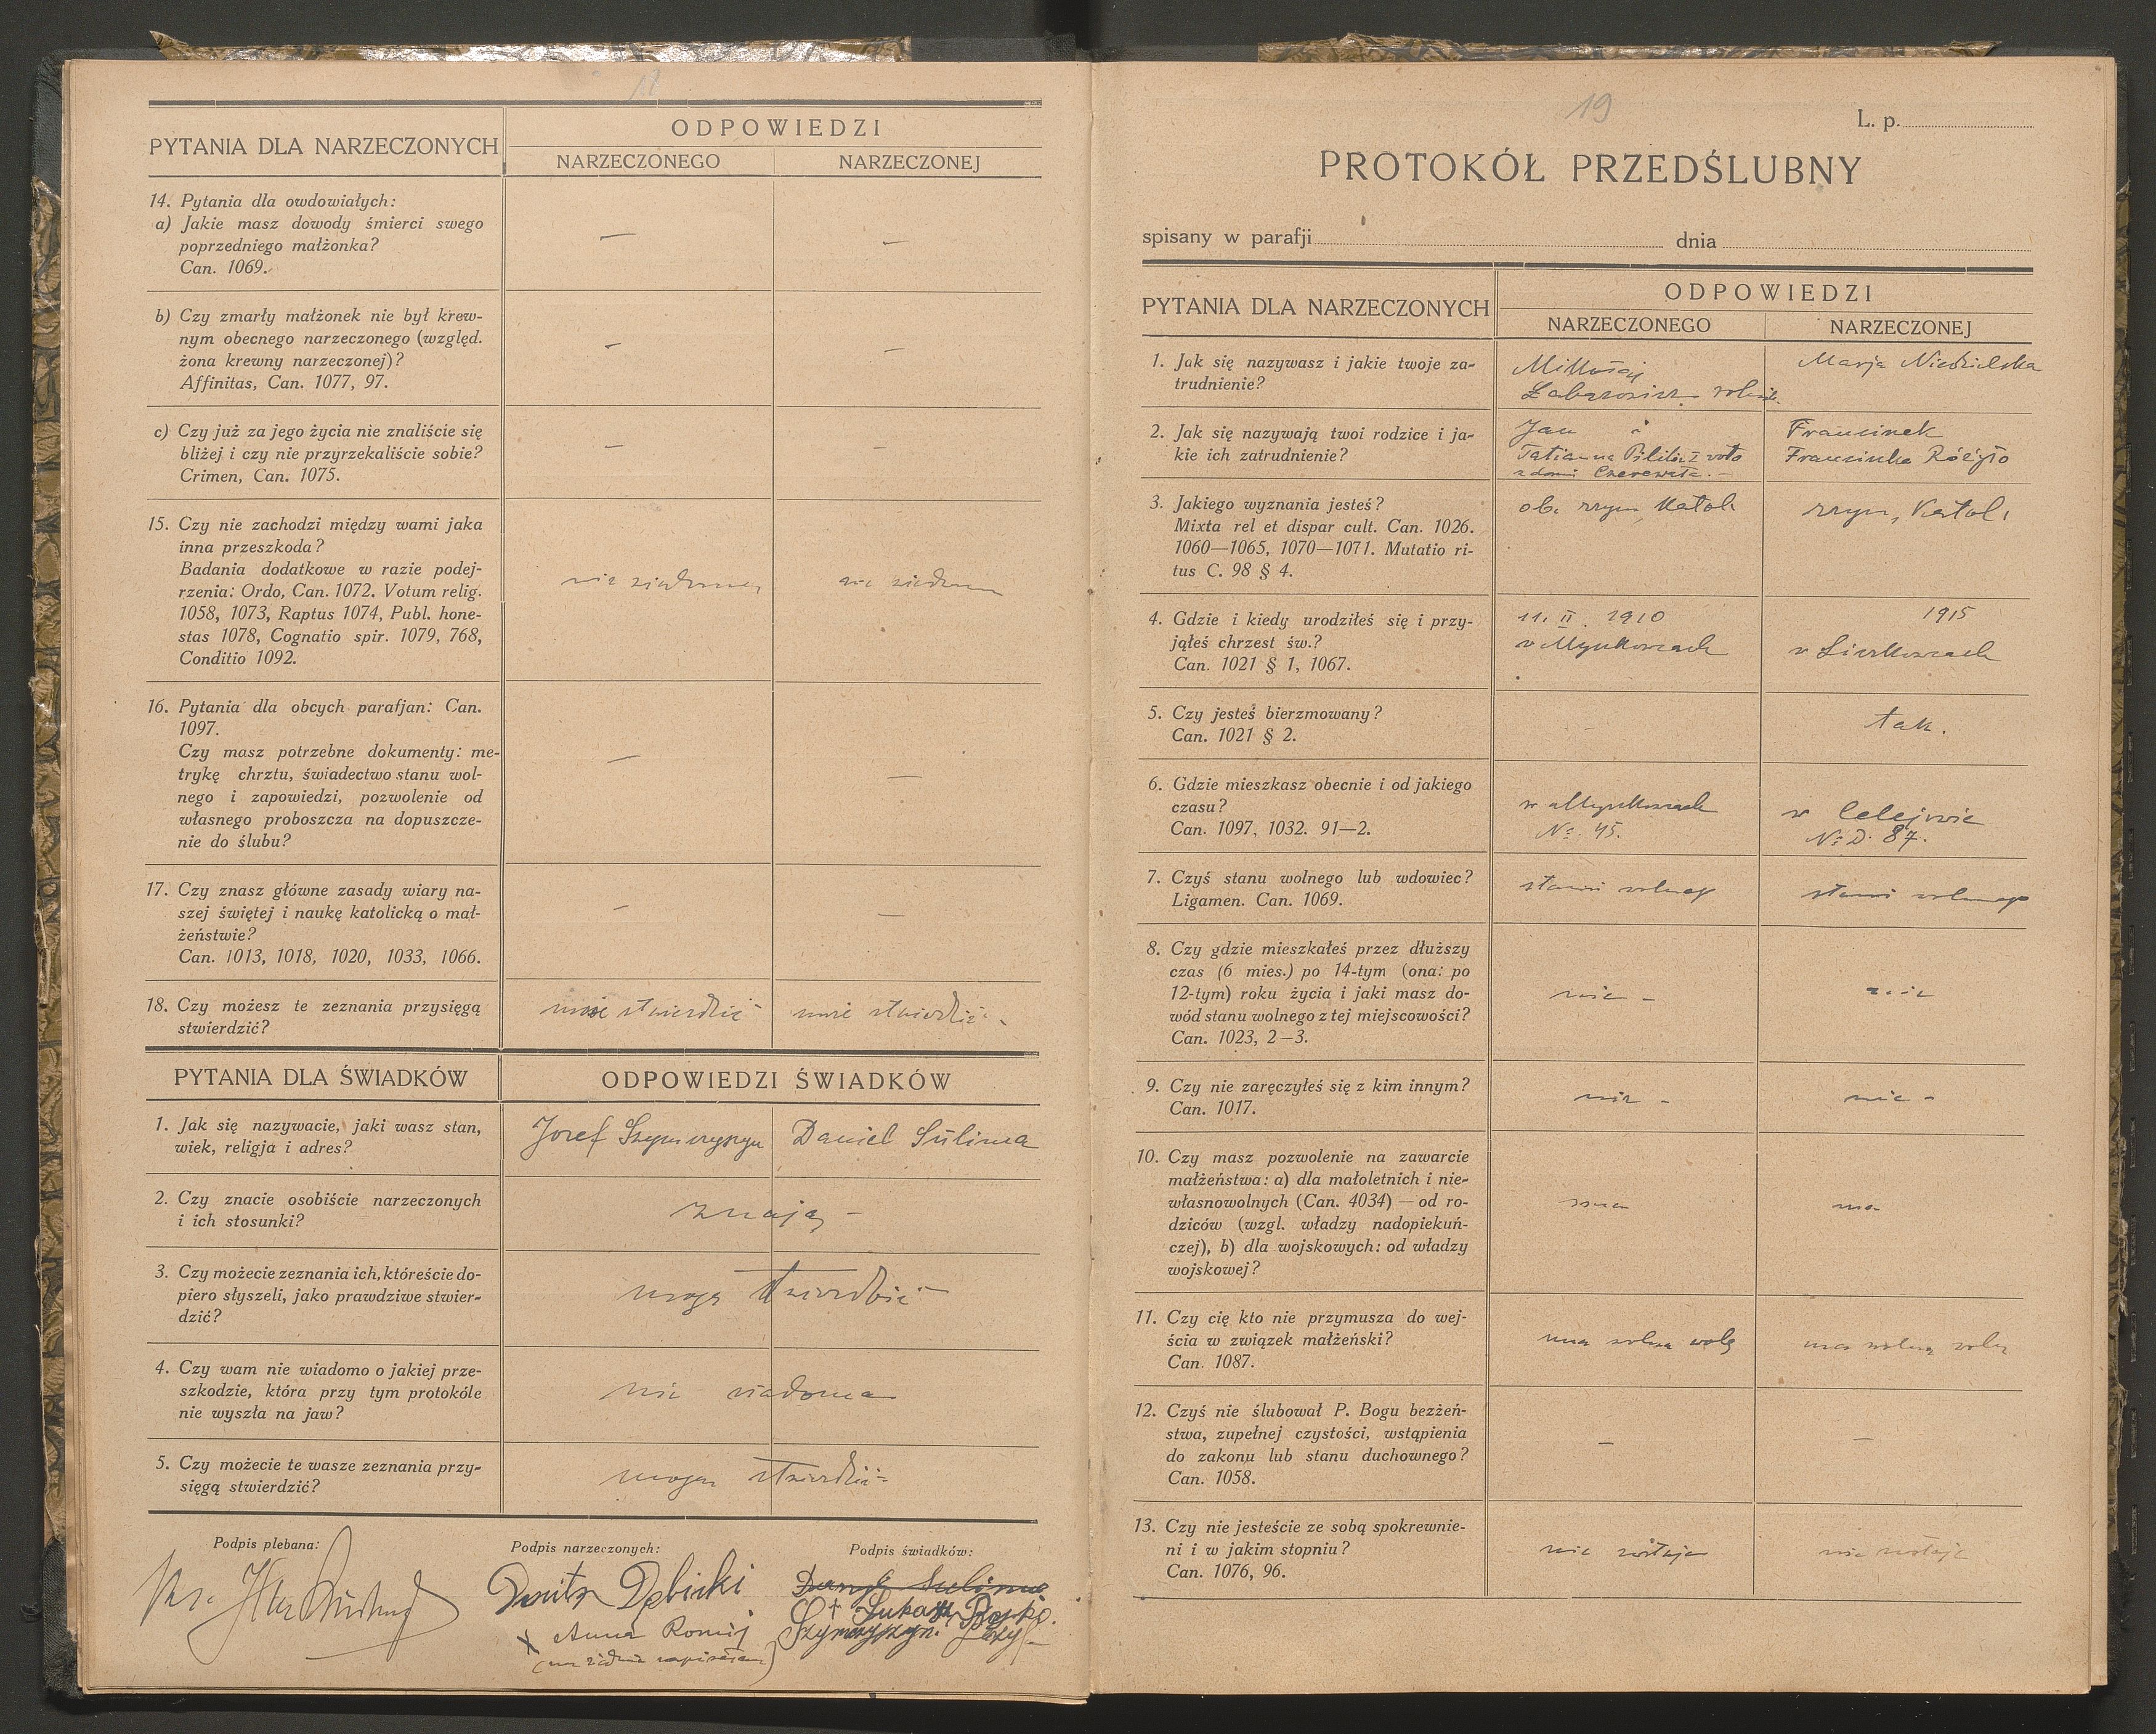 18
PYTANIA DLA NARZECZONYCH
ODPOWIEDZI
NARZECZONEGO NARZECZONEJ
14. Pytania dla owdowiałych:
a) Jakie masz dowody śmierci swego
poprzedniego małżonka?
Can. 1069.
— —
b) Czy zmarły małżonek nie był krew-
nym obecnego narzeczonego (względ.
żona krewny narzeczonej)?
Affinitas, Can. 1077, 97.
— —
c) Czy już za jego życia nie znaliście się
bliżej i czy nie przyrzekaliście sobie?
Crimen, Can. 1075.
— —
15. Czy nie zachodzi między wami jaka
inna przeszkoda?
Badania dodatkowe w razie podej-
rzenia: Ordo, Can. 1072. Votum relig.
1058, 1073, Raptus 1074, Publ. hone-
stas 1078, Cognatio spir. 1079, 768,
Conditio 1092.
nie nie
16. Pytania dla obcych parafjan: Can.
1097.
Czy masz potrzebne dokumenty: me-
trykę chrztu, świadectwo stanu wol-
nego i zapowiedzi, pozwolenie od
własnego proboszcza na dopuszcze-
nie do ślubu?
— —
17. Czy znasz główne zasady wiary na-
szej świętej i naukę katolicką o mał-
żeństwie?
Can. 1013, 1018, 1020, 1033, 1066.
— —
18. Czy możesz te zeznania przysięgą
stwierdzić?
może stwierdzić może stwierdzić
PYTANIA DLA ŚWIADKÓW
ODPOWIEDZI ŚWIADKÓW
1. Jak się nazywacie, jaki wasz stan,
wiek, religja i adres?
Józef Szymeryszyn Daniel Sulima
2. Czy znacie osobiście narzeczonych
i ich stosunki?
znają —
3. Czy możecie zeznania ich, któreście do-
piero słyszeli, jako prawdziwe stwier-
dzić?
mogą stwierdzić —
4. Czy wam nie wiadomo o jakiej prze-
szkodzie, która przy tym protokóle
nie wyszła na jaw?
nie wiadomo
5. Czy możecie te wasze zeznania przy-
sięgą stwierdzić?
mogą stwierdzić
Podpis plebana:
Podpis narzeczonych:
Podpis świadków:
Ks.
Dębicki
x Anna Romij
Szymeryszyn Józef
19
L. p.
PROTOKÓŁ PRZEDŚLUBNY
spisany w parafji dnia
PYTANIA DLA NARZECZONYCH
ODPOWIEDZI
NARZECZONEGO NARZECZONEJ
1. Jak się nazywasz i jakie twoje za-
trudnienie?
Mikołaj
rolnik
Marja Niedzielska
2. Jak się nazywają twoi rodzice i ja-
kie ich zatrudnienie?
Jan i
Tatianna
Franciszek
Franciszka
3. Jakiego wyznania jesteś?
Mixta rel et dispar cult. Can. 1026.
1060—1065, 1070—1071. Mutatio ri-
tus C. 98 § 4.
ob. rzym. Katol.
rzym. Katol.
4. Gdzie i kiedy urodziłeś się i przy-
jąłeś chrzest św.?
Can. 1021 § 1, 1067.
11. II. 1910
w Myszkowcach
1915
w Sierkowcach
5. Czy jesteś bierzmowany?
Can. 1021 § 2.
- tak.
6. Gdzie mieszkasz obecnie i od jakiego
czasu?
Can. 1097, 1032. 91—2.
w Myszkowcach
No. 45.
w Celejowie
No D. 87.
7. Czyś stanu wolnego lub wdowiec?
Ligamen. Can. 1069.
stanu wolnego stanu wolnego
8. Czy gdzie mieszkałeś przez dłuższy
czas (6 mies.) po 14-tym (ona: po
12-tym) roku życia i jaki masz do-
wód stanu wolnego z tej miejscowości?
Can. 1023, 2—3.
nie — nie
9. Czy nie zaręczyłeś się z kim innym?
Can. 1017.
nie — nie —
10. Czy masz pozwolenie na zawarcie
małżeństwa: a) dla małoletnich i nie-
własnowolnych (Can. 4034) — od ro-
dziców (wzgl. władzy nadopiekuń-
czej), b) dla wojskowych: od władzy
wojskowej?
ma ma
11. Czy cię kto nie przymusza do wej-
ścia w związek małżeński?
Can. 1087.
ma wolną wolę ma wolną wolę
12. Czyś nie ślubował P. Bogu bezżeń-
stwa, zupełnej czystości, wstąpienia
do zakonu lub stanu duchownego?
Can. 1058.
— —
13. Czy nie jesteście ze sobą spokrewnie-
ni i w jakim stopniu?
Can. 1076, 96.
nie nie